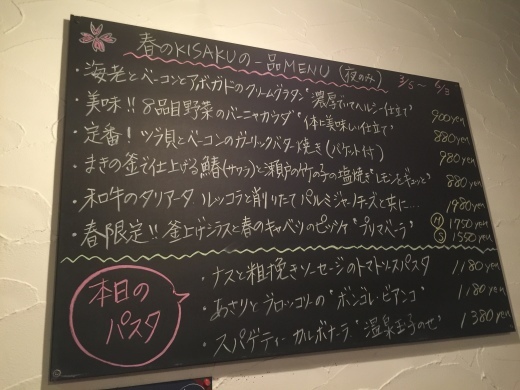 春のKISAKUの一品MENU (夜のみ) 3/5〜5/8
・海老とベーコンとアボガドのクリームグラタン"濃厚でいてヘルシー仕立て" 900yen
・美味!!8品目野菜のバーニャカウダ"体に美味しい仕立て" 880yen
・定番!ツブ貝とベーコンのガーリックバター焼き(バケット付) 980yen
・まきの釜で仕上げる鰆(サワラ)と瀬戸の竹の子の塩焼き"レモンをギュッと" 880yen
・和牛のタリアータ ルッコラと削りたてパルミジャーノチーズと共に… 1980yen
・春限定!!釜上げシラスと春のキャベツのピッツァ"プリマベーラ" M 1750yen
S 1550yen
本日の
パスタ
・ナスと粗挽きソーセージのトマトソースパスタ 1180yen
・あさりとブロッコリーの"ボンゴレ・ビアンコ" 1180yen
・スパゲティー カルボナーラ"温泉玉子のせ" 1380yen